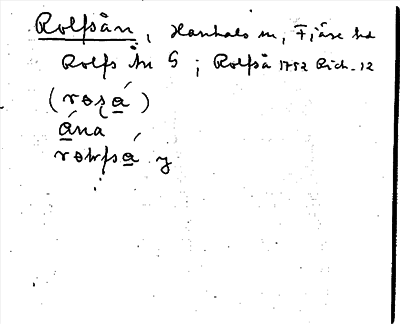 Rolfsån, Hanhals sn, Fjäre hd
Rolfs Ån G; Rolfså 1752 Rich. 12
(rɵsá)
ána